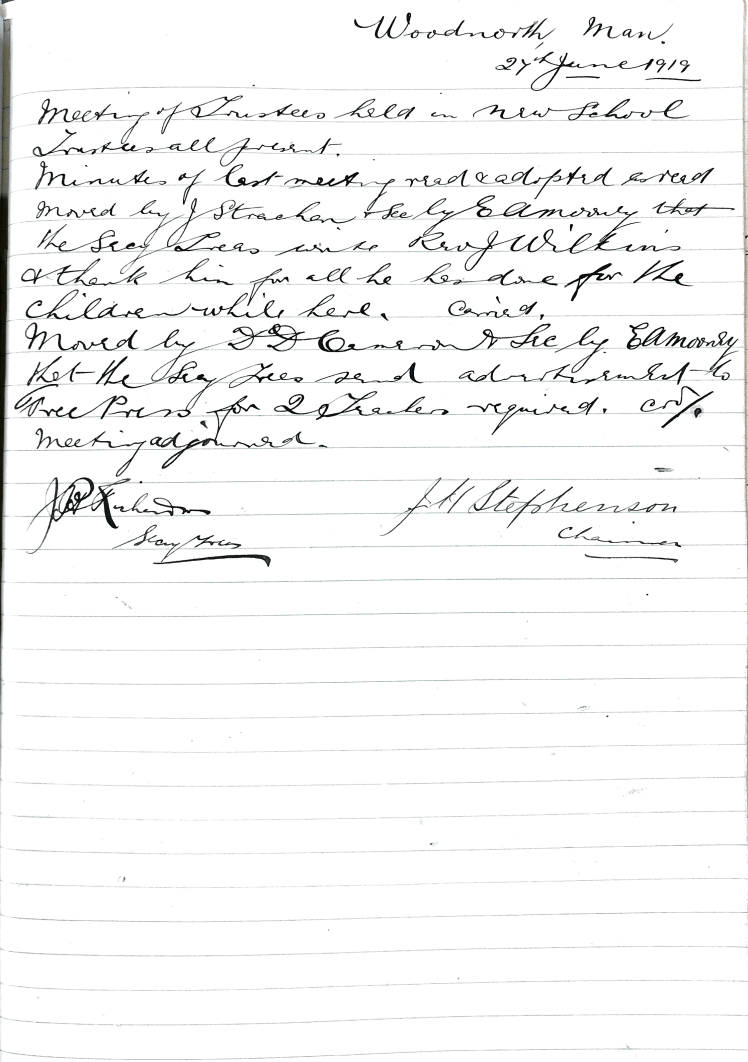 Woodnorth, Man.
27th June 1919
Meeting of Trustees held in New School
Trustees all present.
Minutes of last meeting read & adopted as read
Moved by J Strachan & Sec by E A Mooney that
the Secy Treas write Rev J Wilkins
& thank him for all he has done for the
children while here. Carried.
Moved by D D Cameron & Sec by E A Mooney
that the Secy Treas send advertisement to
Free Press for 2 Teachers required.
Meeting adjourned.
Richardson J H Stephenson
Secy Treas Chairman